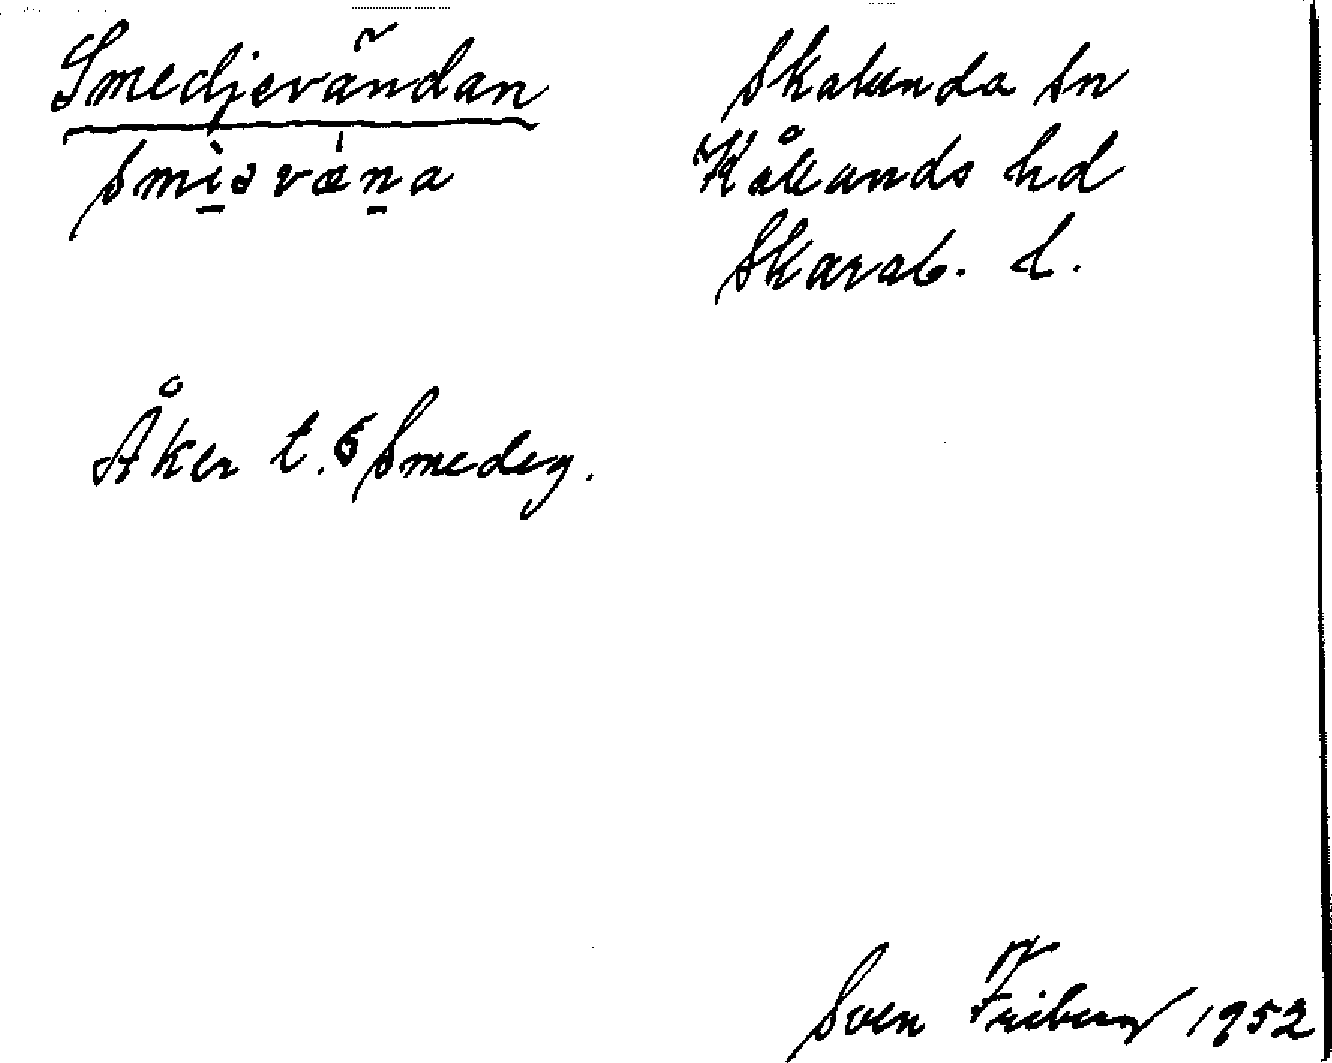 Smedjevändan
smi̠əvæn̠a
Skalunda sn
Kållands hd
Skarab. l.
Åker t. 6 Smedeg.
Sven Friberg 1952